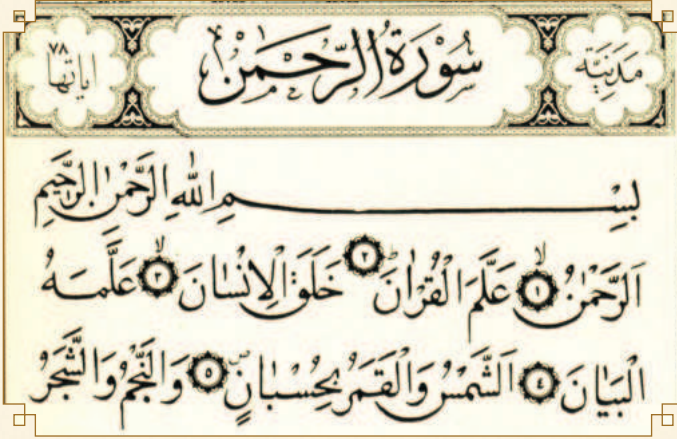 مَدَنِيَّة سُورَةُ الرَّحْمٰنِ اٰيَاتُهَا ٧٨
بِسْمِ اللّٰهِ الرَّحْمٰنِ الرَّحِيمِ
اَلرَّحْمٰنُۙ ١ عَلَّمَ الْقُرْاٰنَۜ ٢ خَلَقَ الْاِنْسَانَۙ ٣ عَلَّمَهُ
الْبَيَانَ ٤ اَلشَّمْسُ وَالْقَمَرُ بِحُسْبَانٍۖ ٥ وَالنَّجْمُ وَالشَّجَرُ